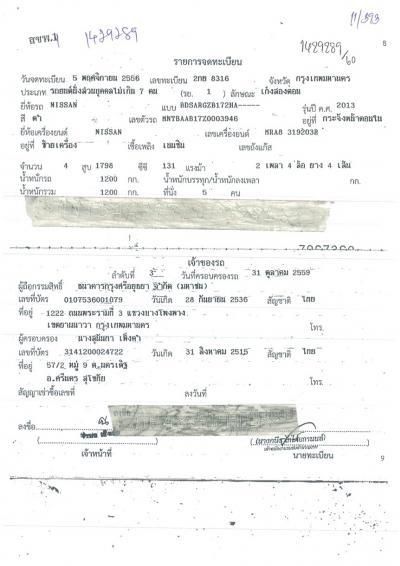 11/393
สขพ.1 1429289
1429289/60
8
รายการจดทะเบียน
วันจดทะเบียน 5 พฤศจิกายน 2556 เลขทะเบียน 2กย 8316 จังหวัด กรุงเทพมหานคร
ประเภท รถยนต์นั่งส่วนบุคคลไม่เกิน 7 คน (รย. 1 ) ลักษณะ เก๋งสองตอน
ยี่ห้อรถ NISSAN แบบ BDSARGZB172HA----- รุ่นปี ค.ศ. 2013
สี ดำ เลขตัวรถ MNTBAAB17Z0003946 อยู่ที่ กระจังหน้าตอนใน
ยี่ห้อเครื่องยนต์ NISSAN เลขเครื่องยนต์ MRA8 319203H
อยู่ที่ ซ้ายเครื่อง เชื้อเพลิง เบนซิน เลขถังแก๊ส
จำนวน 4 สูบ 1798 ซีซี 131 แรงม้า 2 เพลา 4 ล้อ ยาง 4 เส้น
น้ำหนักรถ 1200 กก. น้ำหนักบรรทุก/น้ำหนักลงเพลา กก.
น้ำหนักรวม 1200 กก. ที่นั่ง 5 คน
เจ้าของรถ
ลำดับที่ 3 วันที่ครอบครองรถ 31 ตุลาคม 2559
ผู้ถือกรรมสิทธิ์ ธนาคารกรุงศรีอยุธยา จำกัด (มหาชน)
เลขที่บัตร 0107536001079 วันเกิด 28 กันยายน 2536 สัญชาติ ไทย
ที่อยู่ 1222 ถนนพระรามที่ 3 แขวงบางโพงพาง
เขตยานนาวา กรุงเทพมหานคร โทร.
ผู้ครอบครอง
เลขที่บัตร 3141200024722 วันเกิด 31 สิงหาคม 2515 สัญชาติ ไทย
ที่อยู่ 57/2 หมู่ 9 ต.นครเดิฐ
อ.ศรีนคร สุโขทัย โทร.
สัญญาเช่าซื้อเลขที่ ลงวันที่
ลงชื่อ
เจ้าหน้าที่ นายทะเบียน
9